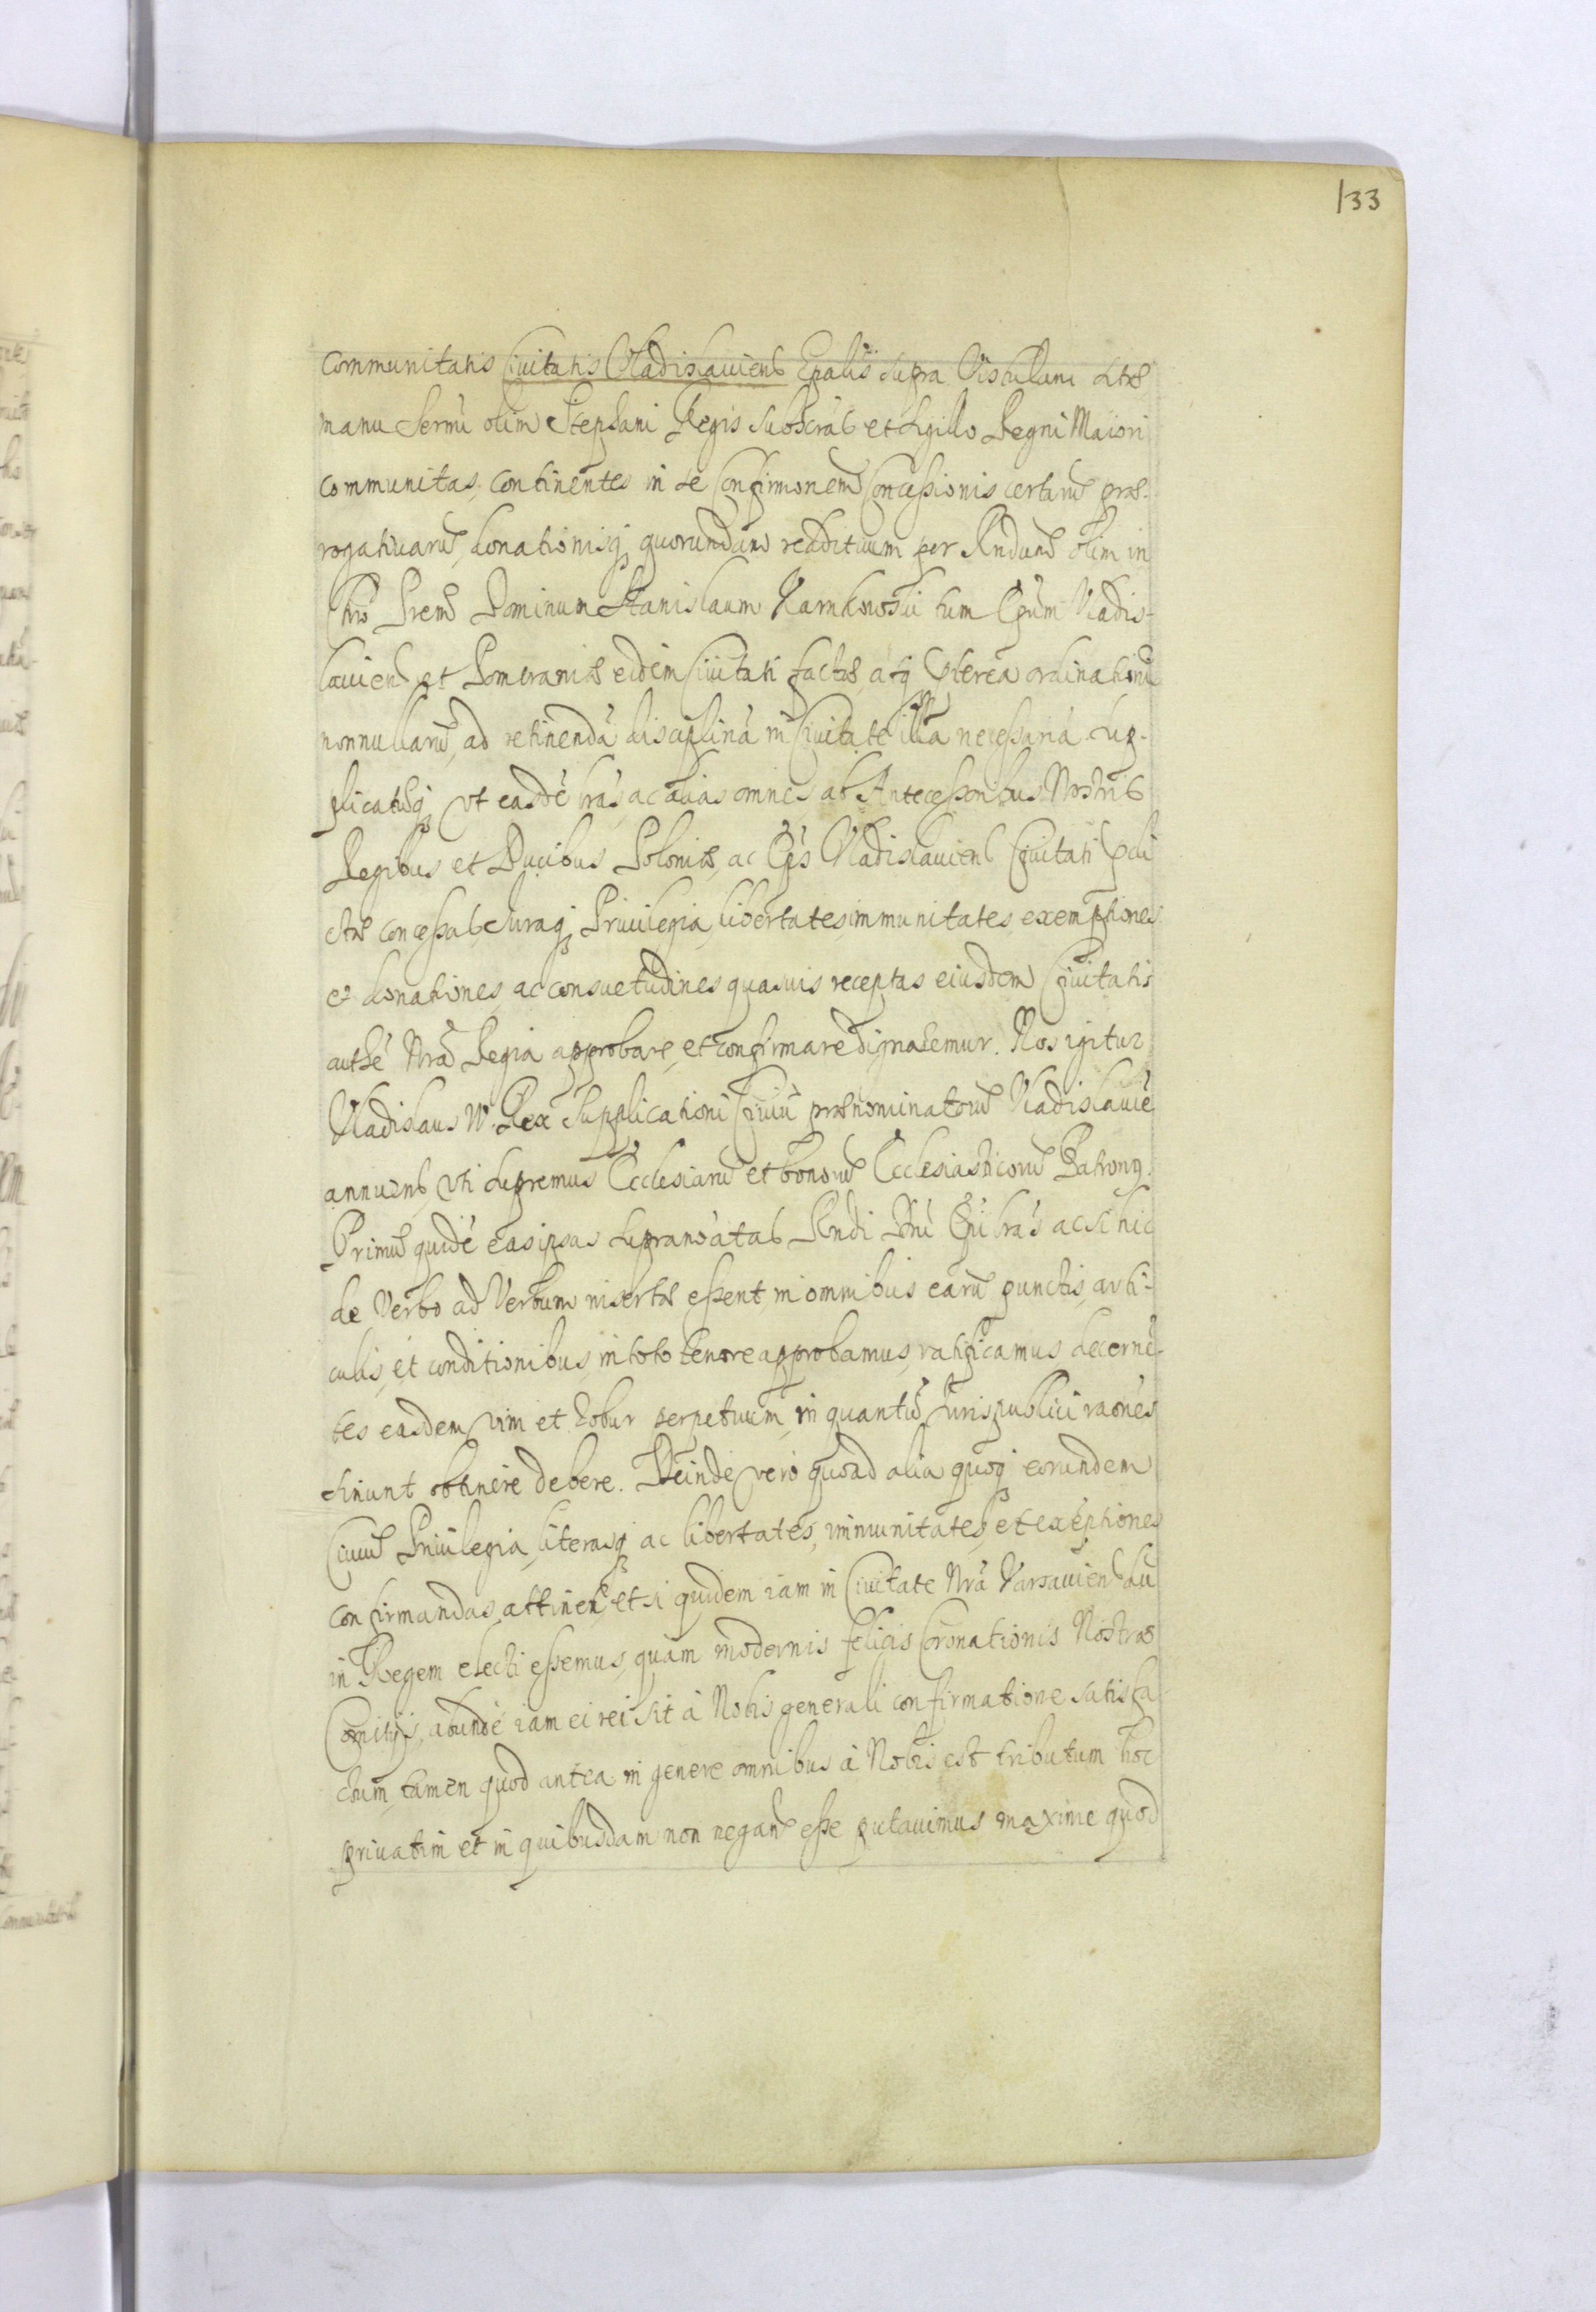 133
communitatis Civitatis Vladislauiens Epalis supra Vistulam Ltrs
manu Sermi olim Stephani Regis subscras et sigillo Regni Maiori
communitas, continentes in se Confirmonem Concessionis certarum præ-
rogativarum, donationisq quorundam reddituum per Rndum olim in
Chro Prem Dominum Stanislaum Karnkowski tum Epum Vladis-
lauien et Pomeraniæ eidem Civitati factæ, atq præterea ordinationũ
nonnullarũ, ad retinendã disciplinã in Civitate illa necessariã sup-
plicatũq vt easdẽ lrãs, ac alias omnes, ab Antecessoribus Nostris
Regibus et Ducibus Poloniæ, ac Epis Vladislauiens Civitati præi
ctæ concessas, Iuraq Priuilegia, libertates, immunitates, exemptiones
et donationes, ac consuetudines quasuis receptas eiusdem Civitatis
authẽ Nrã Regia approbare, et confirmare dignaremur. Nos igitur
Vladislaus IV. Rex Supplicationi Ciuiũ prænominatorũ Vladislauiẽ
annuens, vti supremus Ecclesiarũ et bonorũ Ecclesiasticorũ Patronus.
Primũ quidẽ eas ipsas supranotatas Rndi Dni Epi lrãs ac si hic
de Verbo ad Verbum insertæ essent, in omnibus earũ punctis, arti-
culis, et conditionibus, in toto tenore approbamus, ratificamus decernẽ-
tes easdem vim et robur perpetuum, in quantũ Iuris publici raones
sinunt obtinere debere. Deinde vero quoad alia quoq eorundem
Ciuiũ Priuilegia, literasq ac libertates, immunitates, et exẽptiones
confirmandas attinet, etsi quidem iam in Ciuitate Nrã Varsauiens dũ
in Regem electi essemus, quam modernis felicis Coronationis Nostræ
Comitijs, abundè iam ei rei sit à Nobis generali confirmatione satisfa-
ctum, tamen quod antea in genere omnibus à Nobis est tributum hoc
priuatim et in quibusdam non negandũ esse putauimus maxime quod